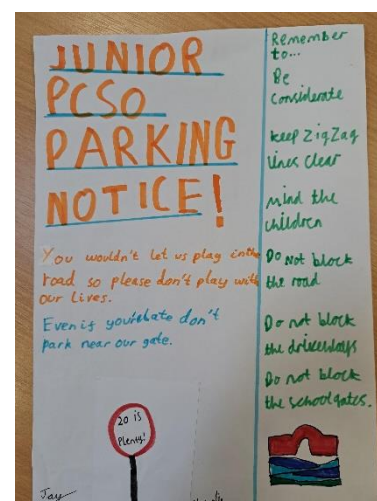 JUNIOR
PCSO
PARKING
NOTICE!
You wouldn't let us play in the
road so please don't play with
our Lives.
Even if you'r late don't
park near our gate.
20 is
Plenty!
Jay
Remember
to...
Be
Considerate
keep ZigZag
lines clear
mind the
children
Do Not block
the road
Do not block
the driveways
Do not block
the school gates.